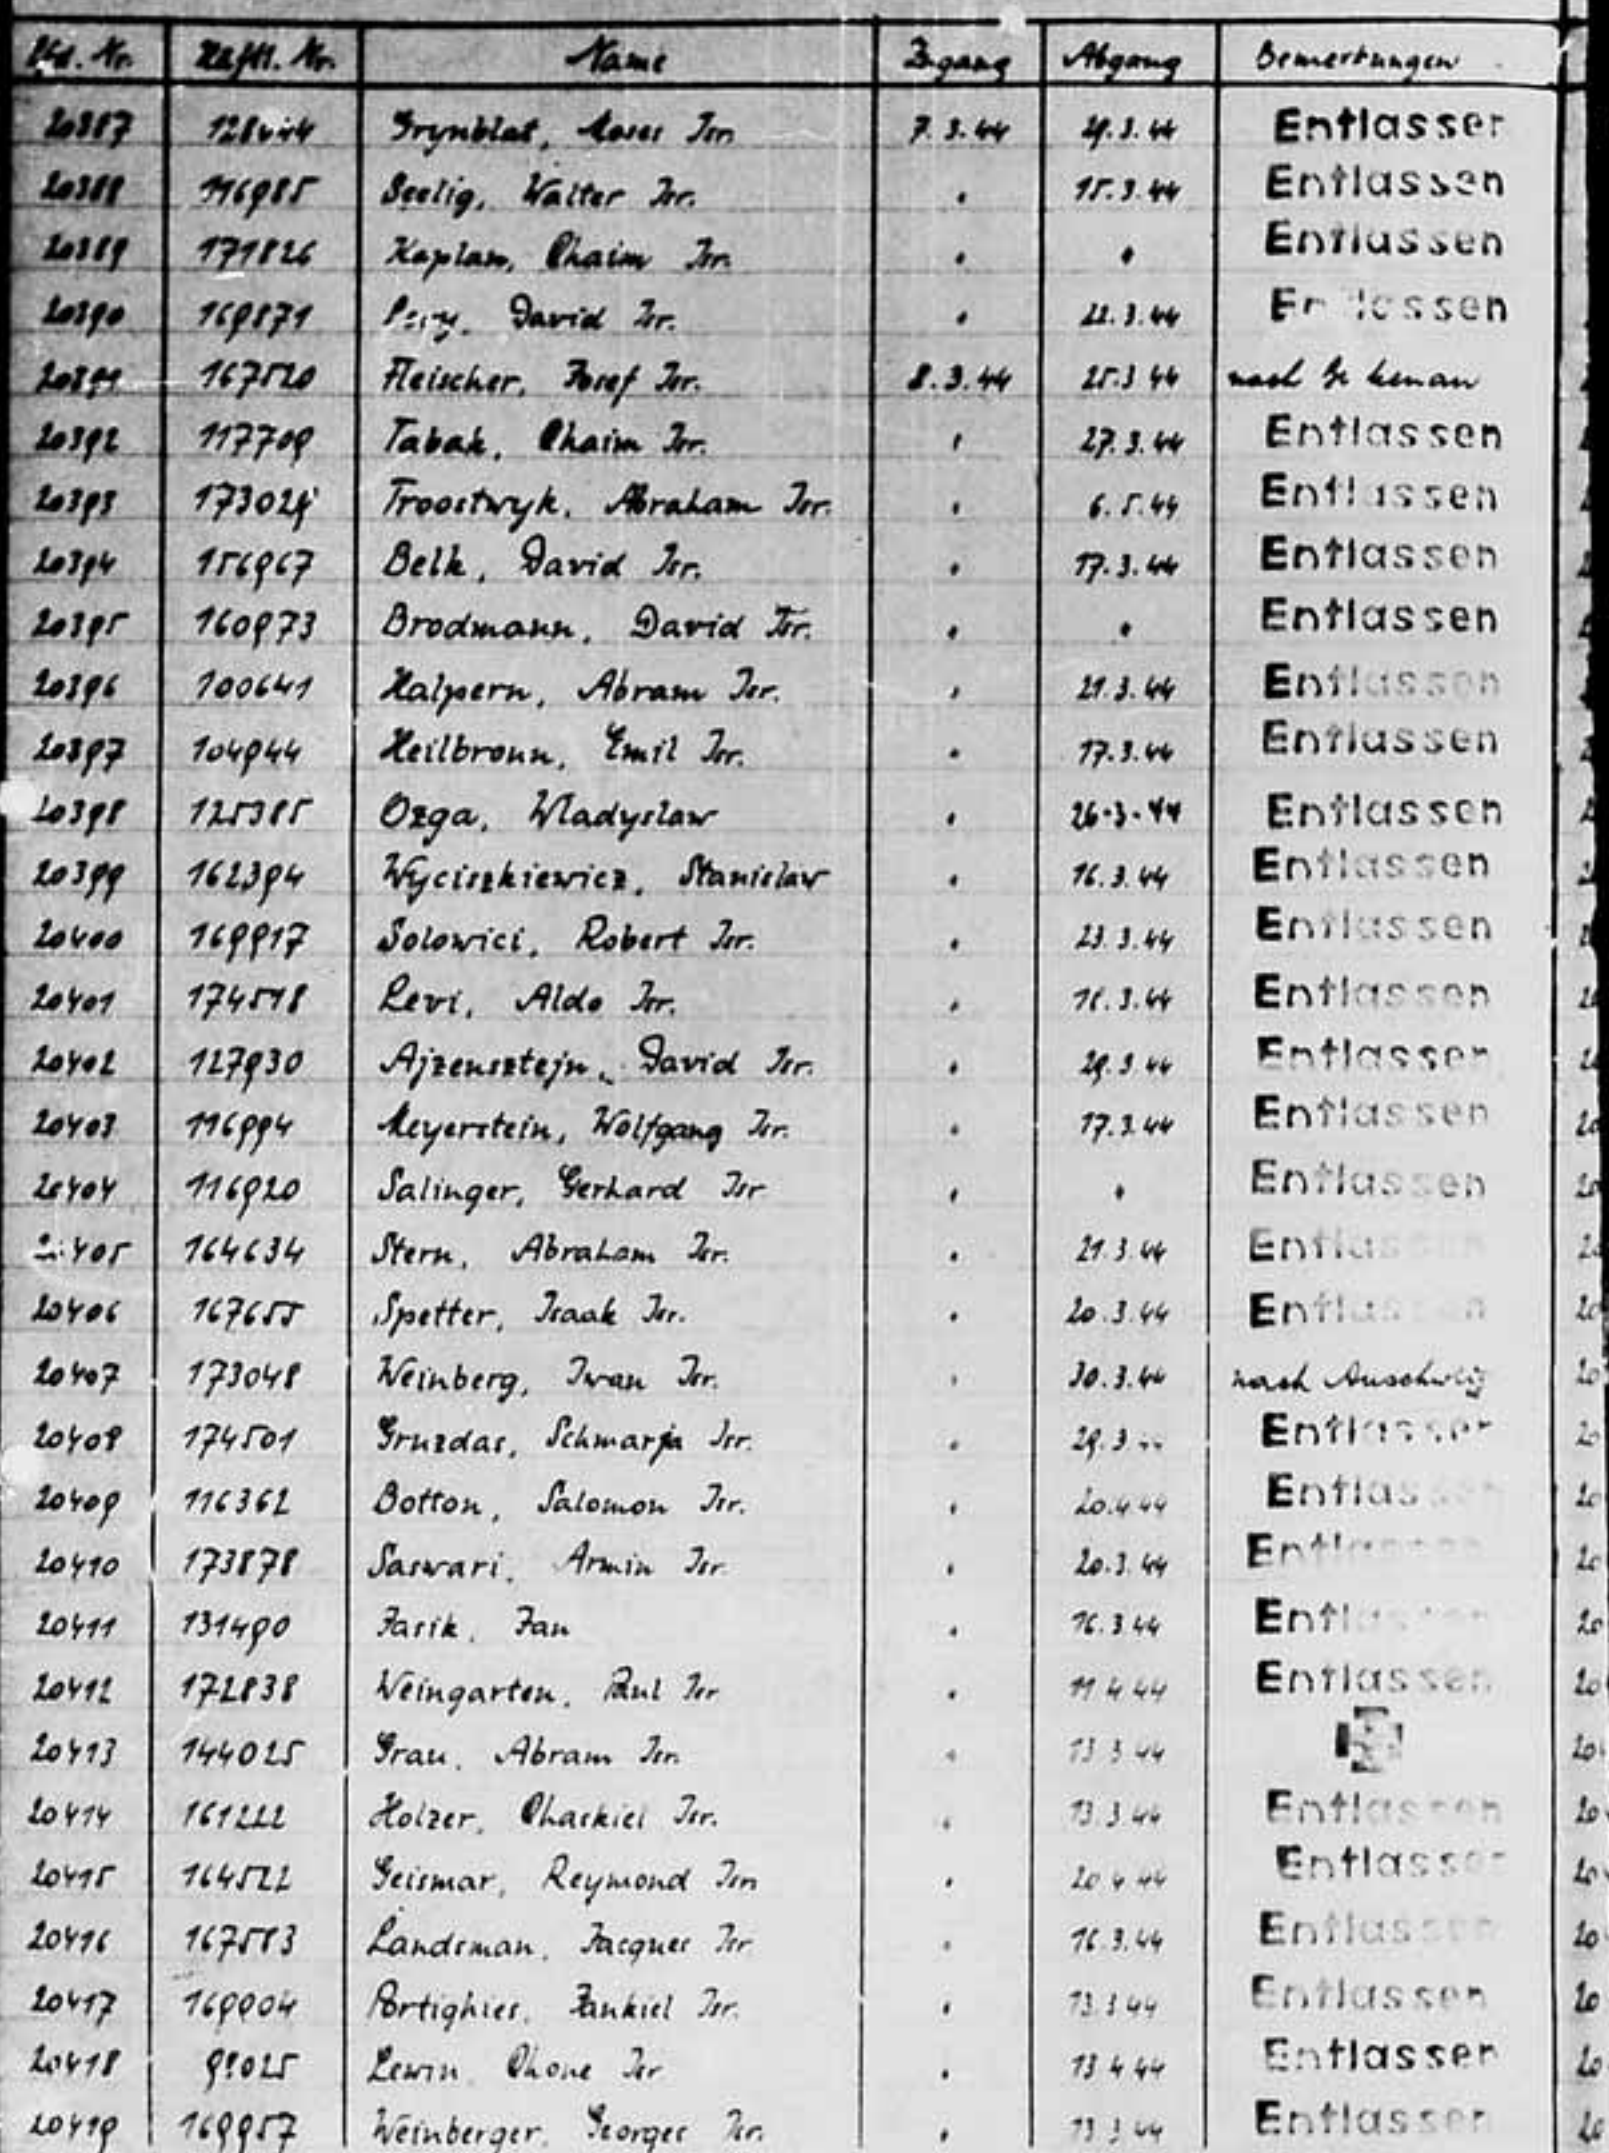 Lfd. Nr. Häftl. Nr. Name Zugang Abgang Bemerkungen
20387 128444 Grynblat, Moses Isr. 7.3.44 29.3.44 Entlassen
20388 116985 Seelig, Walter Isr. " 15.3.44 Entlassen
20389 171826 Kaplan, Chaim Isr. " " Entlassen
20390 169871 David Isr. " 22.3.44 Entlassen
20391 167520 Fleischer, Josef Isr. 8.3.44 25.3.44 nach Birkenau
20392 117709 Tabak, Chaim Isr. " 27.3.44 Entlassen
20393 Troostwyk, Abraham Isr. " 6.5.44 Entlassen
20394 156967 Belk, David Isr. " 17.3.44 Entlassen
20395 160973 Brodmann, David Isr. " " Entlassen
20396 100641 Halpern, Abram Isr. " 21.3.44 Entlassen
20397 104944 Heilbronn, Emil Isr. " 17.3.44 Entlassen
20398 125385 Ozga, Wladyslaw " 26.3.44 Entlassen
20399 162394 Wyciszkiewicz, Stanislaw " 16.3.44 Entlassen
20400 169917 Solowici, Robert Isr. " 23.3.44 Entlassen
20401 174518 Levi, Aldo Isr. " 18.3.44 Entlassen
20402 127930 Ajzensztejn, David Isr. " 29.3.44 Entlassen
20403 116994 Meyerstein, Wolfgang Isr. " 17.3.44 Entlassen
20404 116920 Salinger, Gerhard Isr " " Entlassen
20405 164634 Stern, Abraham Isr. " 21.3.44 Entlassen
20406 167655 Spetter, Isaak Isr. " 20.3.44 Entlassen
20407 173048 Weinberg, Iwan Isr. " 30.3.44 nach Auschwitz
20408 174501 Gruzdas, Schmarja Isr. " 29.3 Entlassen
20409 116362 Botton, Salomon Isr. " 20.4.44 Entlassen
20410 173878 Saswari, Armin Isr " 20.3.44 Entlassen
20411 131490 Jasik, Jan " 16.3.44 Entlassen
20412 172838 Weingarten, Paul Isr " 11 4 44 Entlassen
20413 144025 Grau, Abram Isr. " 13 3 44
20414 161222 Holzer, Chaskiel Isr. " 13.3.44 Entlassen
20415 164522 Geismar, Reymond Isr. " 20 4 44 Entlassen
20416 167583 Landsman, Jacques Isr " 16.3.44 Entlassen
20417 Portighies, Jankiel Isr. " 13.3 44 Entlassen
20418 Lewin, Chone Isr " 13 4 44 Entlassen
20419 169957 Weinberger, Georges Isr. " 13 3 44 Entlassen